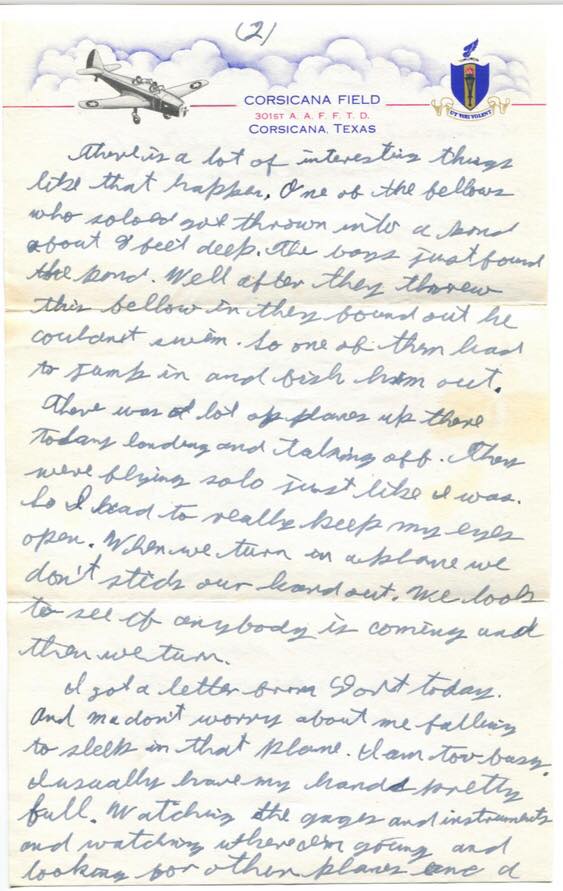 (2)
CORSICANA FIELD
301ST A. A. F. F. T. D.
CORSICANA, TEXAS
UT VIRI VOLENT
There is a lot of interesting things
like that happen. One of the fellows
who soloed got thrown into a pond
about 9 feet deep. The boys just found
the pond. Well after they threw
this fellow in they found out he
couldnt swim. So one of them had
to jump in and fish him out.
There was a lot of planes up there
today landing and taking off. They
were flying solo just like I was.
So I had to really keep my eyes
open. When we turn in a plane we
don't stick our hand out. We look
to see if anybody is coming and
then we turn.
I got a letter from today.
And ma don't worry about me falling
to sleep in that plane. I am too busy.
I usually have my hands pretty
full. Watching the gages and instruments
and watching where I'm going and
looking for other planes and